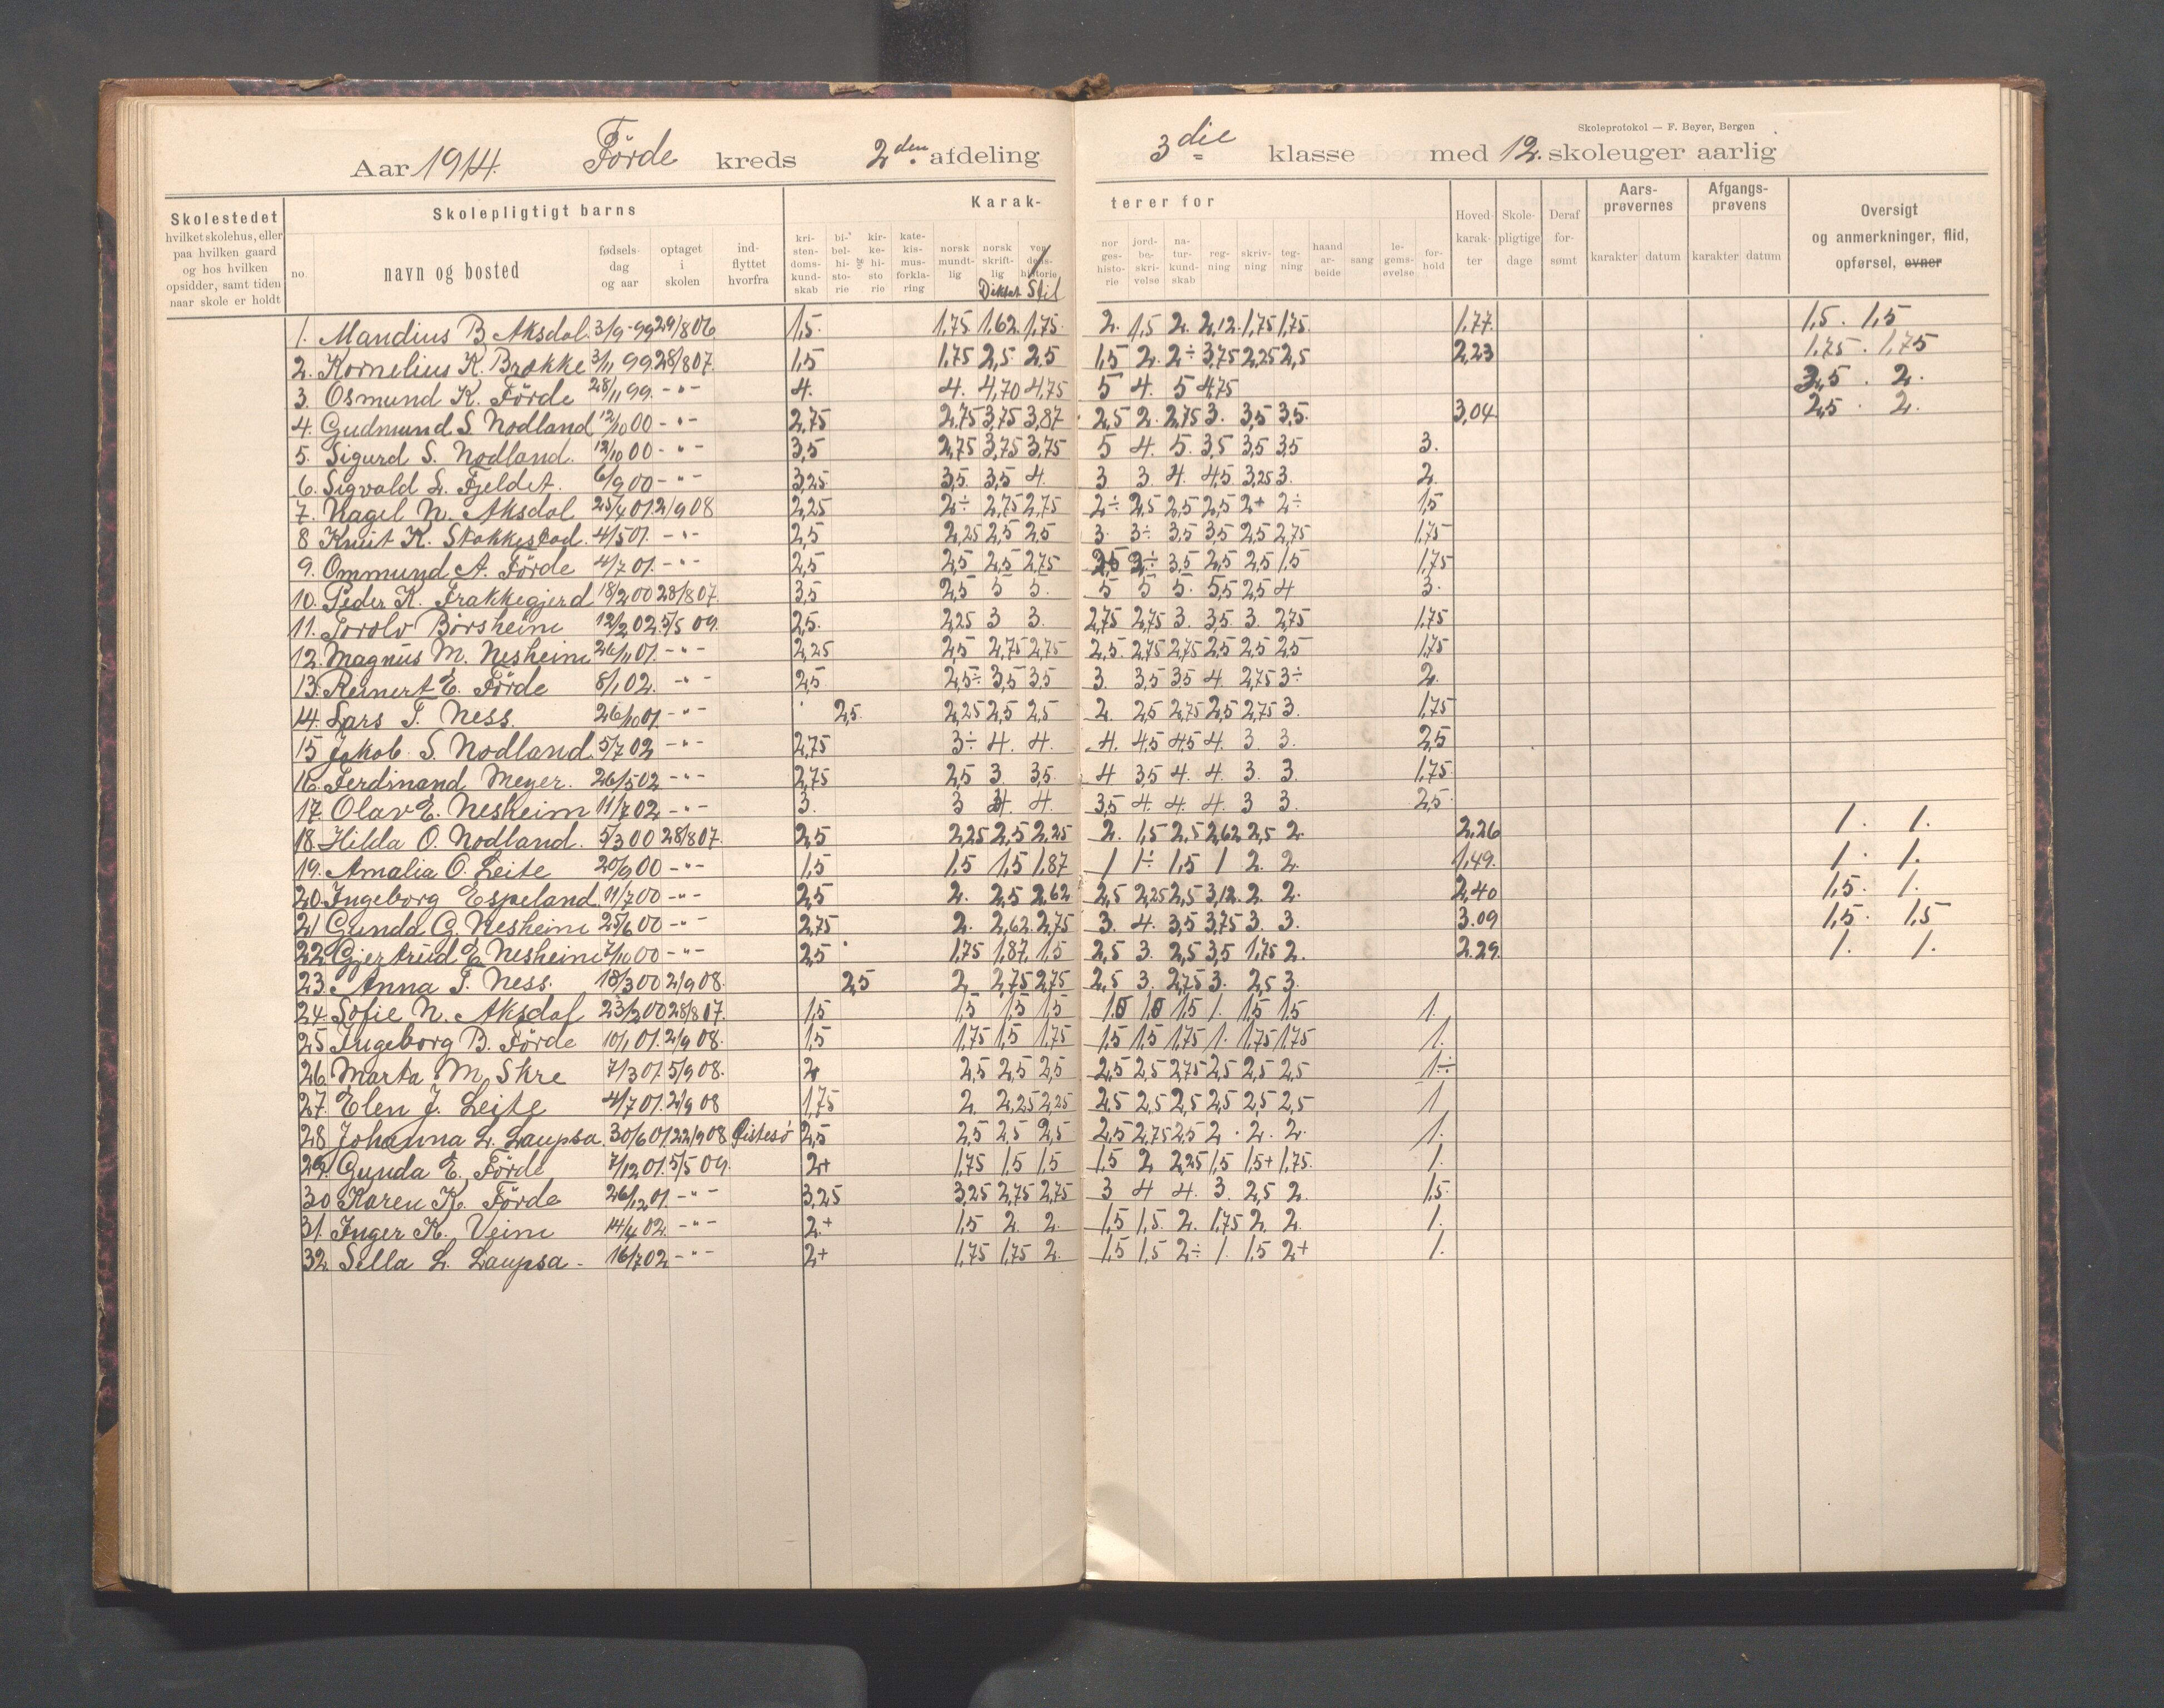 Skoleprotokol — F. Beyer, Bergen
Aar 1914. Förde kreds 2den afdeling 3die klasse med 12. skoleuger aarlig
Skolestedet hvilket skolehus, eller paa hvilken gaard og hos hvilken opsidder, samt tiden naar skole er holdt
Skolepligtigt barns
no. navn og bosted fødsels-dag og aar optaget i skolen ind-flyttet hvorfra
Karak- terer for
kri-sten-doms-kund-skab bi-bel-hi-sto-rie kir-ke-hi-sto rie kate-kis-mus-forkla-ring norsk mundt-lig norsk skrift-lig Diktat ver dens-historie Stil nor ges-histo-rie jord-be-skri-velse na-tur-kund-skab reg-ning skriv-ning teg-ning haand ar-beide sang le-gems-øvelse for-hold
Hoved-karak-ter Skole-pligtige dage Deraf for-sømt Aars-prøvernes karakter datum Afgangs-prøvens karakter datum
Oversigt og anmerkninger, flid, opførsel, evner
1. Mandius B. Aksdal. 3/9-99 29/8 06. 1,5. 1,75 1,62. 1,75. 2. 1,5 2. 2,12. 1,75 1,75. 1,77. 1,5. 1,5
2. Kornelius K. Brække 3/11 99 28/8 07. 1,5 1,75 2,5 2,5 1,5 2. 2÷ 3,75 2,25 2,5 2,23 1,75. 1,75
3. Osmund K. Förde 28/11 99. -"- 4. 4. 4,70 4,75 5 4. 5 4,75 3,5. 2.
4. Gudmund S. Nodland 12/10 00 -"- 2,75 2,75 3,75 3,87 2,5 2. 2,75 3. 3,5 3,5. 3,04 2,5. 2.
5. Sigurd S. Nodland. 12/10 00 -"- 3,5 2,75 3,75 3,75 5 4. 5. 3,5 3,5 3,5 3.
6. Sigvald L. Fjeldet. 6/9 00 -"- 3,25 3,5. 3,5 4. 3 3. 4. 4,5 3,25 3. 2.
7. Nagel N. Aksdal 25/4 01 2/9 08 2,25 2÷ 2,75 2,75 2÷ 2,5 2,5 2,5 2+ 2÷ 1,5
8 Knut K. Stakkestad. 4/5 01. -"- 2,5 2,25 2,5 2,5 3. 3÷ 3,5 3,5 2,5 2,75 1,75
9. Ommund A. Förde 4/7 01. -"- 2,5 2,5 2,5 2,75 3÷ 3,5 2,5 2,5 1,5 1,75
10. Peder K. Frakkegjerd 18/2 00 28/8 07. 3,5 2,5 5 5. 5 5 5. 5,5 2,5 4 3.
11. Torolv Börsheim 12/2 02. 5/5 09. 2,5. 2,25 3 3. 2,75 2,75 3. 3,5. 3. 2,75 1,75
12. Magnus M. Nesheim 26/11 01. -"- 2,25 2,5 2,75 2,75 2,5. 2,75 2,75 2,5 2,5 2,5 1,75
13. Reinert E. Förde 8/1 02. -"- 2,5 2,5÷ 3,5 3,5 3. 3,5 3,5 4. 2,75 3÷ 2.
14. Lars T. Ness. 26/10 01. -"- 2,5. 2,25 2,5 2,5 2. 2,5 2,75 2,5 2,75 3. 1,75
15 Jakob S. Nodland. 5/7 02 -"- 2,75 3÷ 4. 4. 4. 4,5 4,5 4. 3. 3. 2,5
16. Ferdinand Meyer. 26/5 02 -"- 2,75 2,5 3. 3,5. 4 3,5 4. 4. 3. 3. 1,75
17. Olav E. Nesheim 11/7 02 -"- 3. 3 4. 4. 3,5 4. 4. 4. 3 3. 2,5
18. Hilda O. Nodland. 5/3 00 28/8 07. 2,5 2,25 2,5 2,25 2. 1,5 2,5 2,62 2,5 2. 2,26 1. 1.
19. Amalia O. Leite 20/9 00 -"- 1,5 1,5 1,5 1,87 1 1÷ 1,5 1 2. 2. 1,49. 1. 1.
20. Ingeborg Espeland. 11/7 00 -"- 2,5 2. 2,5 2,62 2,5 2,25 2,5 3,12. 2. 2. 2,40 1,5. 1.
21 Gunda G. Nesheim 25/6 00 -"- 2,75 2. 2,62. 2,75 3. 4. 3,5 3,75 3. 3. 3.09 1,5. 1,5
22. Gjertrüd E. Nesheim 7/10 00 -"- 2,5 1,75 1,87. 1,5 2,5 3. 2,5 3,5 1,75 2. 2.29. 1. 1.
23. Anna T. Ness. 18/3 00 2/9 08. 2,5 2 2,75 2,75 2,5 3. 2,75 3. 2,5 3.
24. Sofie N. Aksdal 23/2 00 28/8 07. 1,5 1,5 1,5 1,5 1,5 1,5 1,5 1. 1,5 1,5 1.
25 Ingeborg B. Förde 10/1 01. 2/9 08. 1,5 1,75 1,5 1,75 1,5 1,5 1,75 1. 1,75 1,75 1.
26 Marta M. Skre 7/3 01. 5/9 08. 2 2,5 2,5 2,5 2,5 2,5 2,75 2,5 2,5 2,5 1÷
27. Elen J. Leite 4/7 01. 2/9 08 1,75 2. 2,25 2,25 2,5 2,5 2,5 2,5 2,5 2,5 1
28 Johanna L. Laupsa. 30/6 01 22/9 08 2,5 2,5 2,5 2,5 2,5 2,75 2,5 2. 2. 2. 1.
29. Gunda E. Förde 7/12 01. 5/5 09. 2+ 1,75 1,5 1,5 1,5 2 2,25 1,5 1,5+ 1,75. 1.
30 Karen K. Förde 26/12 01. -"- 3,25 3,25 2,75 2,75 3 4 4. 3. 2,5 2. 1,5
31. Inger K. Veim 14/4 02. -"- 2.+ 1,5 2. 2. 1,5 1,5. 2. 1,75 2. 2. 1.
32. Sella L. Laupsa - 16/7 02 -"- 2+ 1,75 1,75 2. 1,5 1,5 2÷ 1. 1,5 2+ 1.